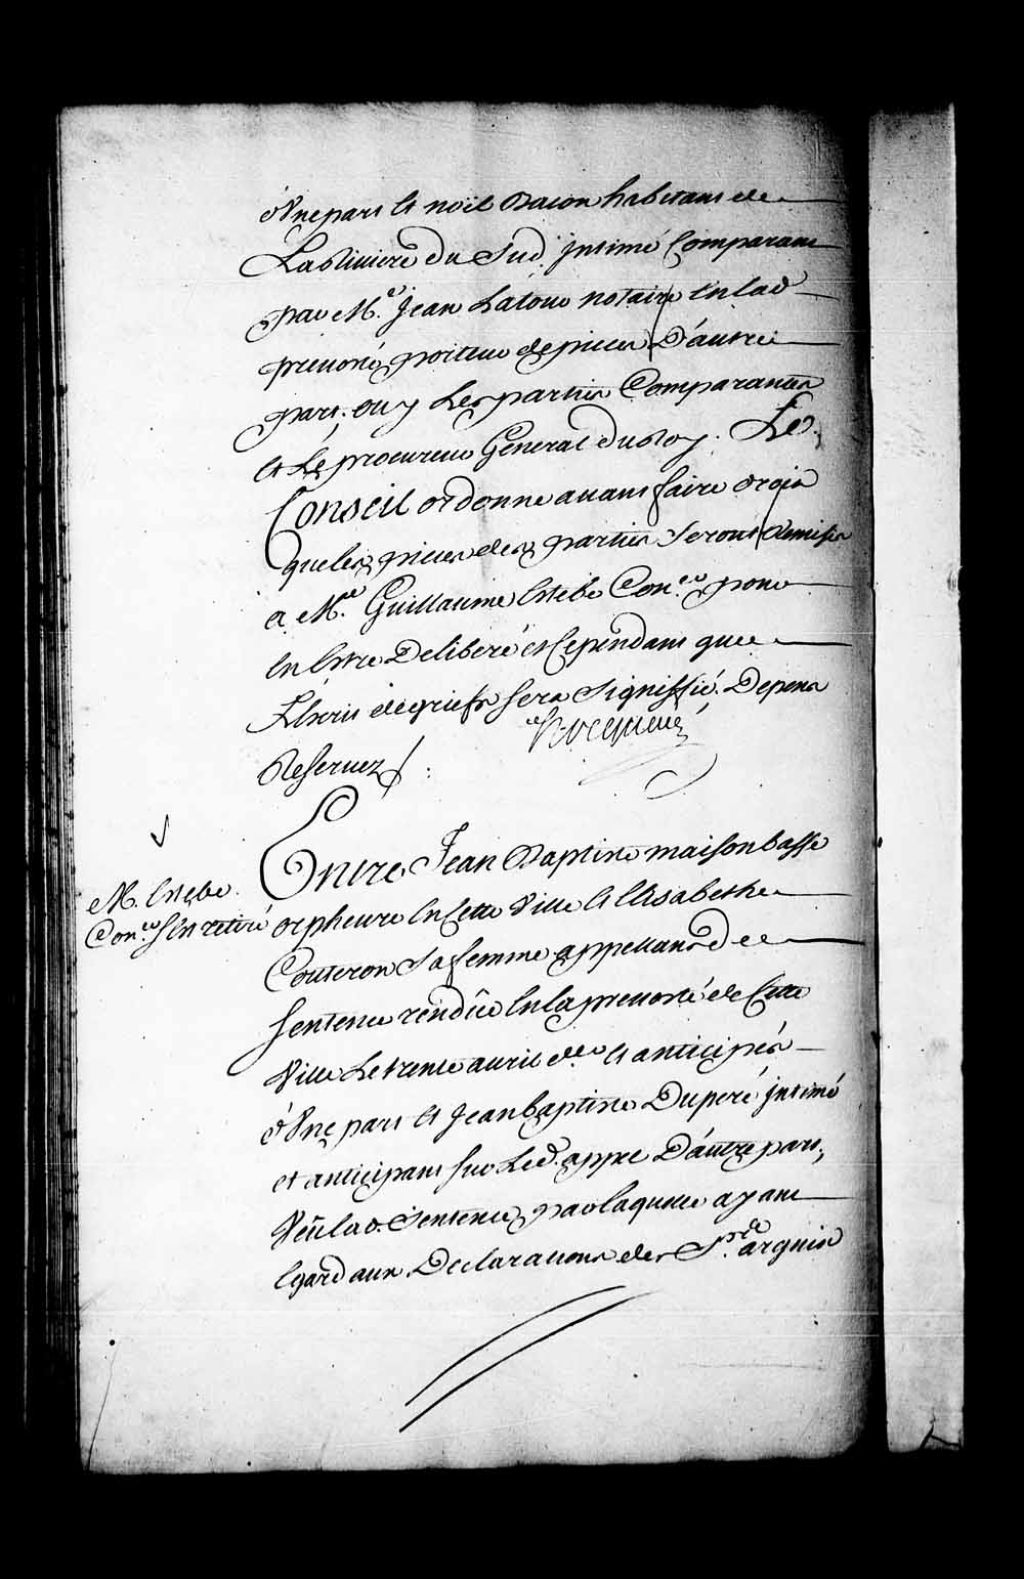 d'Une part Et noël Bacon habitant de
La Riviere du Sud. Intimé Comparant
par Me. Jean Latour notaire En lad
prevosté, porteur de pieces D'autre
part; ouy Les parties Comparantes
Et Le procureur General du Roy. Le
Conseil ordonne avant faire droit
que les pieces des parties Seront remises
a Me. Guillaume Estebe Coner. pour
En Estre Deliberé et Cependant que
L'Ecrit de griefs sera Signiffié. Depens
Reservez
hocquart
Entre Jean Baptiste maisonbasse
M. Estebe
Coner. s'en retiré
orpheuvre En Cette Ville Et Elisabethe
Couteron Sa femme appellants de
Sentence rendüe En la prevosté de Cette
Ville Le trente avril der. Et anticipés
d'Une part Et Jean baptiste Duperé intimé
et anticipant sur Led. appel D'autre part;
Veu lad. Sentence, par laquelle ayant
Egard aux Declarations des Srs. arguin